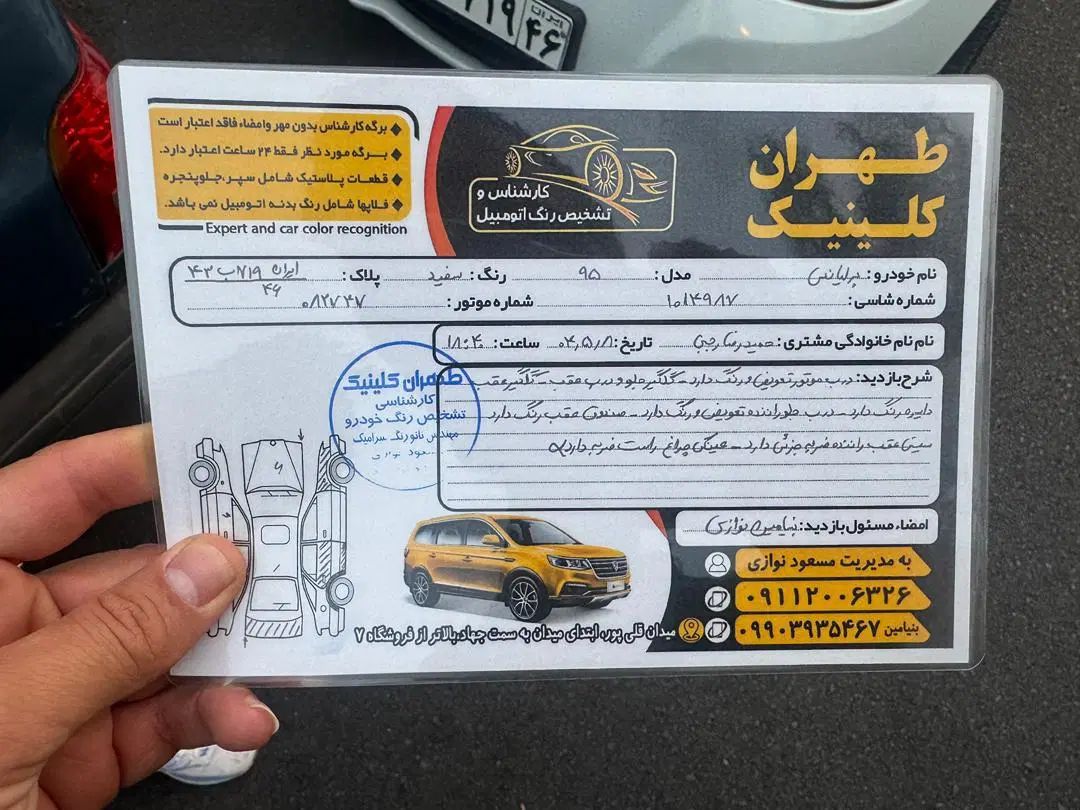 ۷۱۹
ایران
۴۶
برگه کارشناس بدون مهر وامضاء فاقد اعتبار است
بـرگه مورد نظر فـقط ۲۴ ساعت اعتبار دارد.
قطعات پـلاستیک شامل سپر،جلوپنجره
فـلاپها شامل رنگ بدنه اتومبیل نمی باشد.
Expert and car color recognition
کارشناس و
تشخیص رنگ اتومبیل
طـهـران
کلـینیـک
نام خودرو: برلیانس مدل: ۹۵ رنگ: سفید پلاک: ایران ۷۱۹ب۴۳
۴۶
شماره شاسی: شماره موتور: ۰۸۲۷۴۷
نام نام خانوادگی مشتری: حمیدرضا رجبی تاریخ: ۰۴,۵,۸ ساعت: ۱۸:۴۰
شرح بازدید: درب موتور تعویض و رنگ دارد - گلگیر جلو و درب عقب - گلگیر عقب
دایره رنگ دارد - درب جلو راننده تعویض و رنگ دارد - صندوق عقب رنگ دارد
سینی عقب راننده ضربه جزئی دارد - سینی چراغ راست ضربه دارد
طهران کلینیک
کارشناسی
تشخیص رنگ خودرو
مهندس نانو رنگ سرامیک
امضاء مسئول بازدید: بنیامین نوازی
به مدیریت مسعود نوازی
۰۹۱۱۲۰۰۶۳۲۶
بنیامین ۰۹۹۰۳۹۳۵۴۶۷
میدان قلی پور، ابتدای میدان به سمت جهاد،بالاتر از فروشگاه ۷